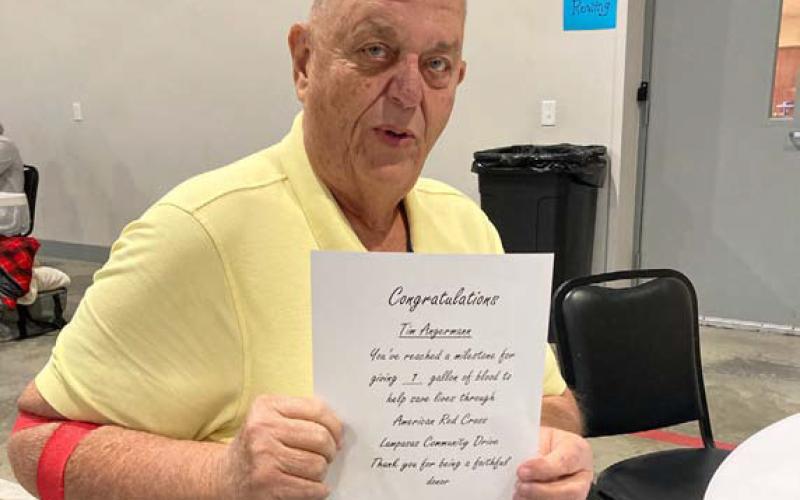 Rowing
Congratulations
Tim Angermann
You've reached a milestone for
giving 1 gallon of blood to
help save lives through
American Red Cross
Lampasas Community Drive
Thank you for being a faithful
donor